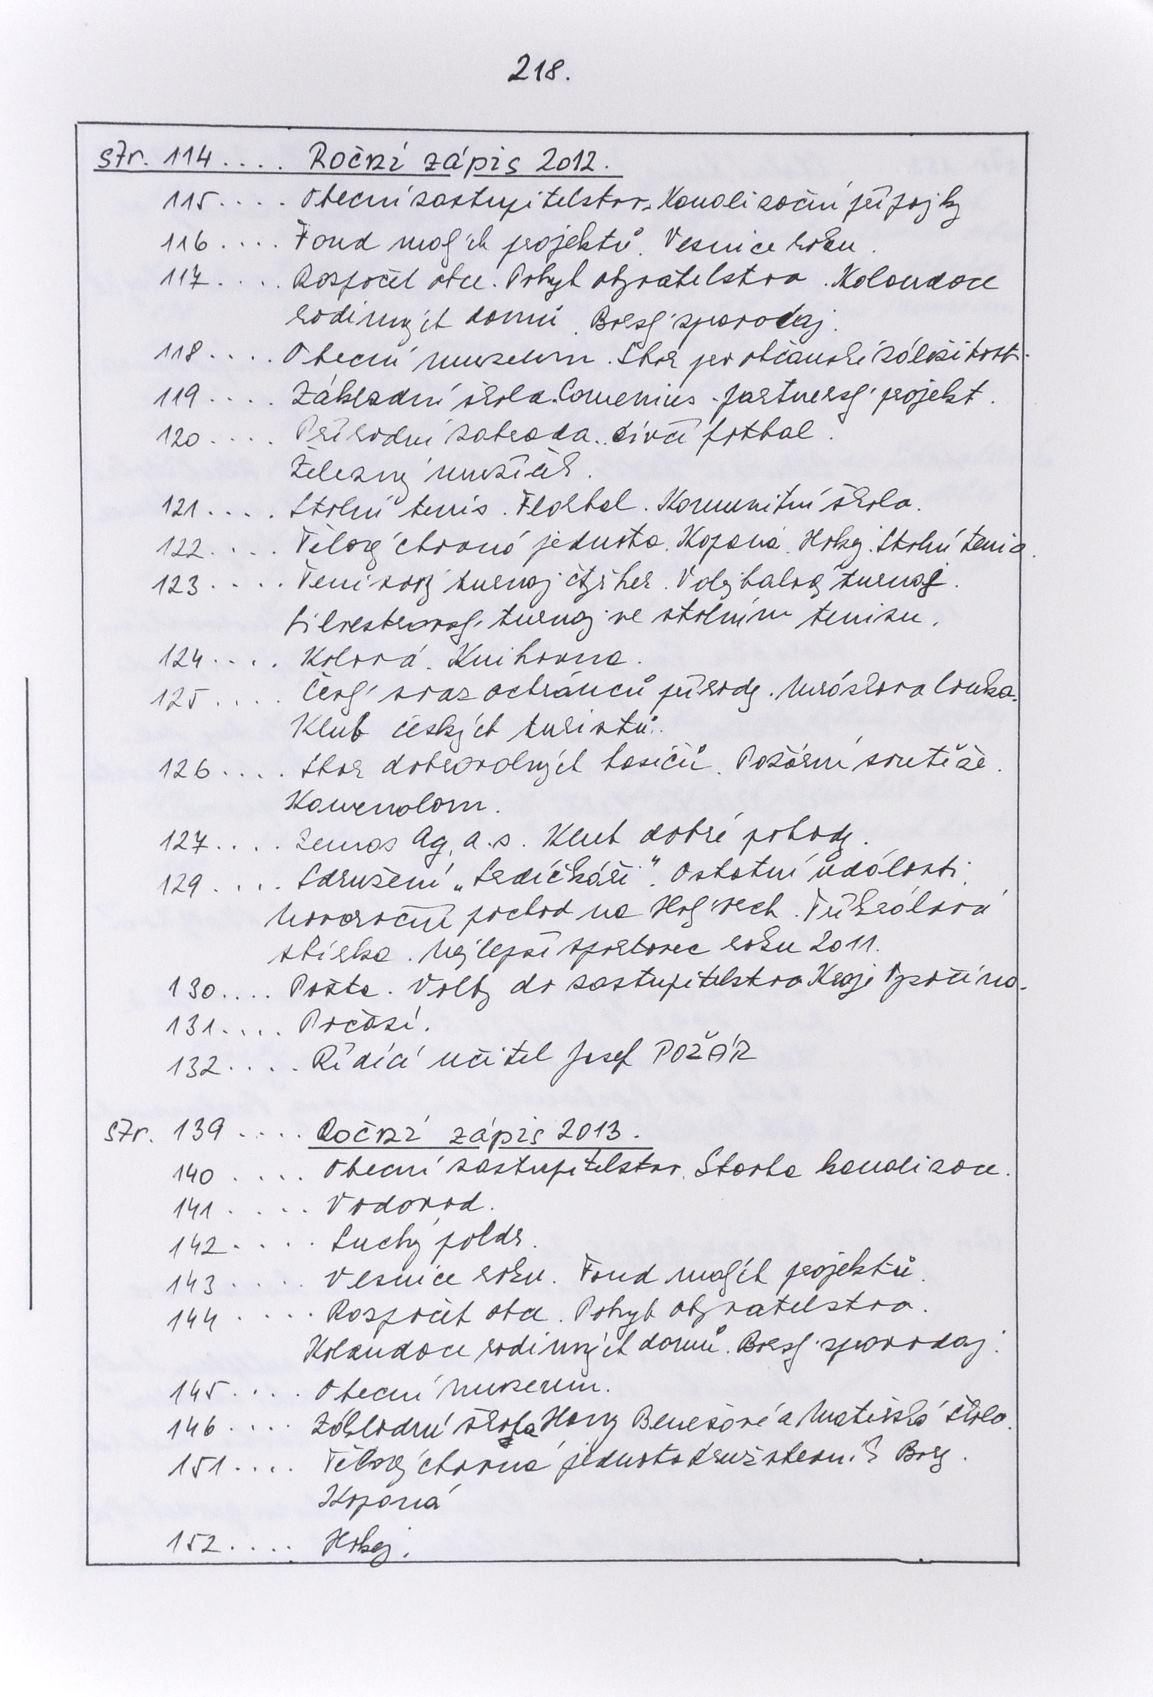 218.
str. 114 .... Roční zápis 2012.
115 .... Obecní zastupitelstvo. Kanalizační přípojky
116 .... Fond malých projektů. Vesnice roku.
117 .... Rozpočet obce. Pohyb obyvatelstva. Kolaudace
rodinných domů. Borský zpravodaj.
118 .... Obecní muzeum. Sbor pro občanské záležitosti.
119 .... Základní škola. Comenius - partnerský projekt.
120 .... Přírodní zahrada. Dívčí fotbal.
Železný mužíček.
121 .... Stolní tenis. Florbal. Komunitní škola.
122 .... Tělovýchovná jednota. Kopaná. Hokej. Stolní tenis.
123 .... Tenisový turnaj čtyřher. Volejbalový turnaj.
Silvestrovský turnaj ve stolním tenisu.
124 .... Kolová. Knihovna.
125 .... Český svaz ochránců přírody. Mrázkova louka.
Klub českých turistů.
126 .... Sbor dobrovolných hasičů. Požární soutěže.
Kamenolom.
127 .... Zemas Ag, a.s. Klub dobré pohody.
129 .... Sdružení „Srdíčkáři". Ostatní události.
Novoroční pochod na Holý vrch. Tříkrálová
sbírka. Nejlepší sportovec roku 2011.
130 .... Pošta. Volby do zastupitelstva Kraje Vysočina.
131 .... Počasí.
132 .... Řídící učitel Josef POŽÁR
str. 139 .... Roční zápis 2013.
140 .... Obecní zastupitelstvo. Stavba kanalizace.
141 .... Vodovod.
142 .... Suchý poldr.
143 .... Vesnice roku. Fond malých projektů.
144 .... Rozpočet obce. Pohyb obyvatelstva.
Kolaudace rodinných domů. Borský zpravodaj.
145 .... Obecní muzeum.
146 .... Základní škola Hany Benešové a Mateřská škola.
151 .... Tělovýchovná jednota družstevník Bory.
Kopaná
152 .... Hokej.